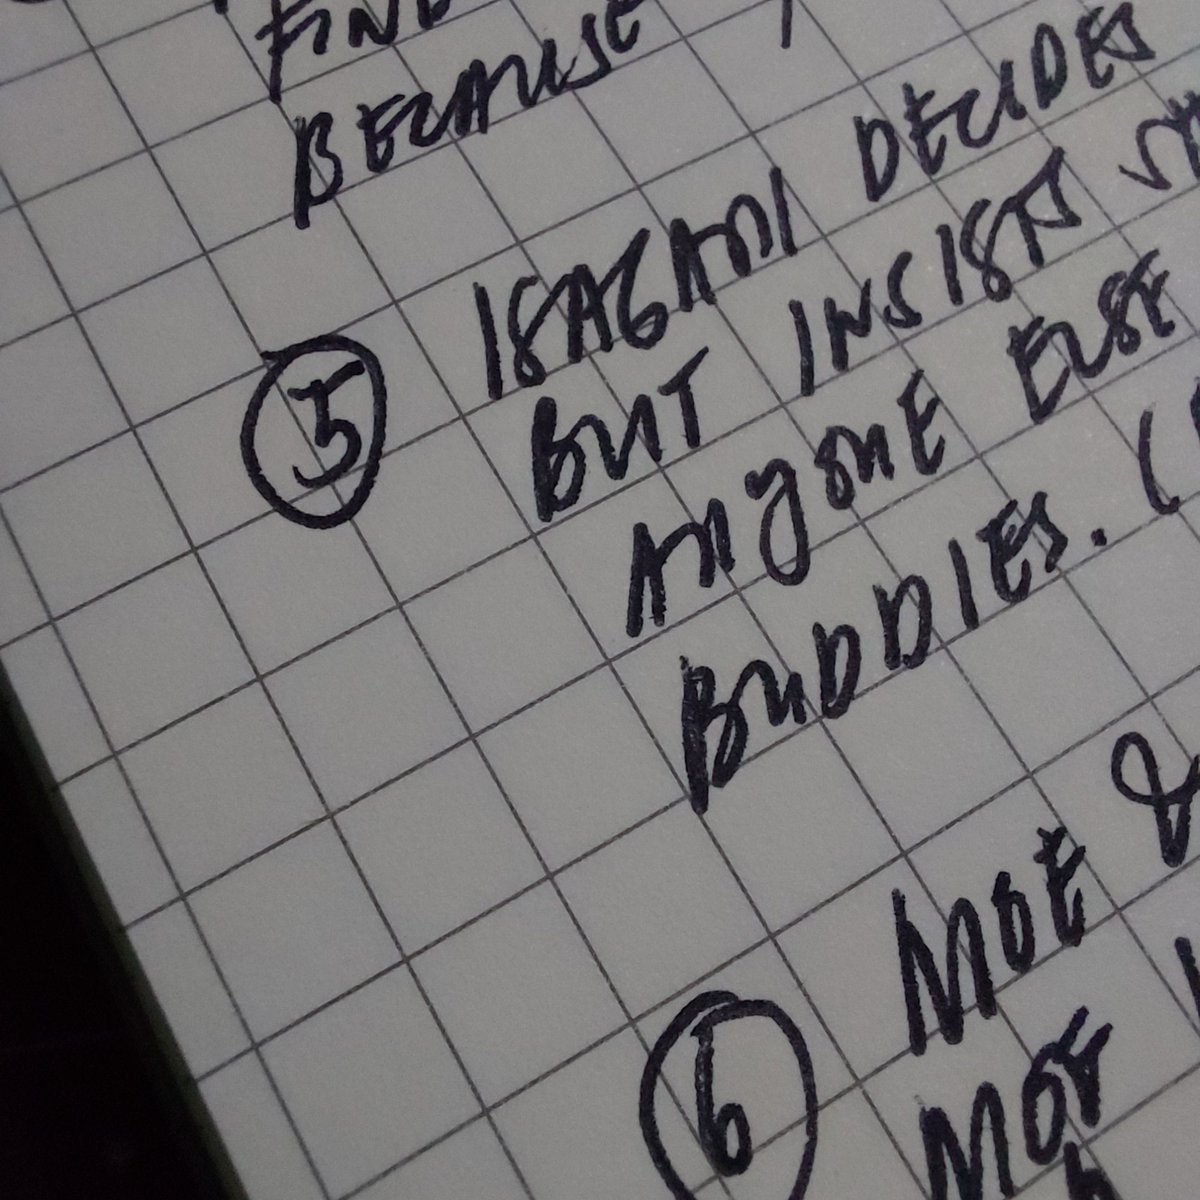 BECAUSE
⑤ ISAGANI DECIDES
BUT INSISTS
ANYONE ELSE
BUDDIES. (
⑥ MOE &
MOE